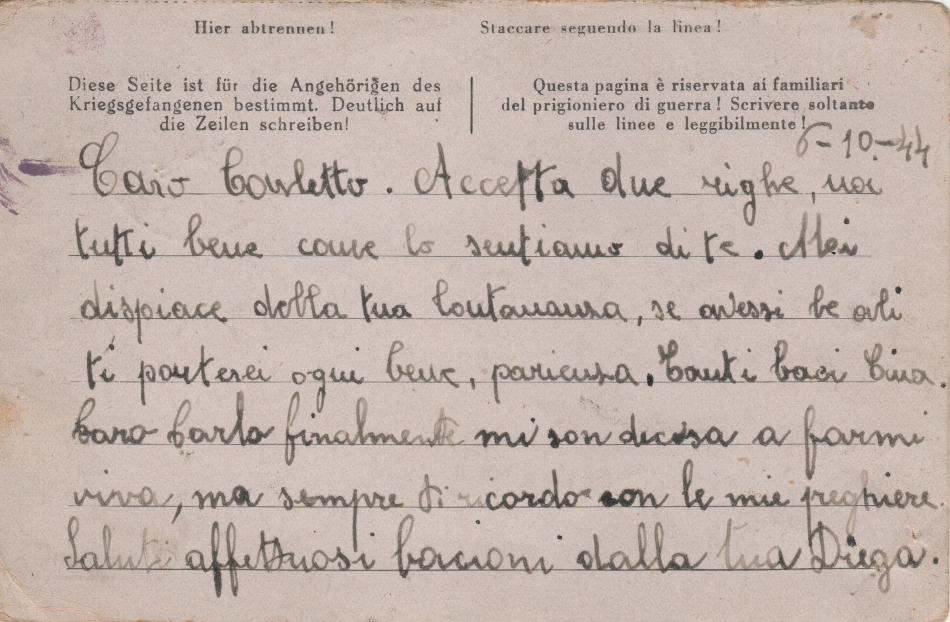 Hier abtrennen!
Staccare seguendo la linea!
Diese Seite ist für die Angehörigen des
Kriegsgefangenen bestimmt. Deutlich auf
die Zeilen schreiben!
Questa pagina è riservata ai familiari
del prigioniero di guerra! Scrivere soltanto
sulle linee e leggibilmente!
6-10-44
Caro Carletto. Accetta due righe, noi
tutti bene come lo sentiamo di te. Mi
dispiace della tua lontananza, se avessi le ali
ti porterei ogni bene, parienza. Tanti baci
Caro Carlo finalmente mi son decisa a farmi
viva, ma sempre ti ricordo con le mie preghiere.
Saluti affettuosi bacioni dalla tua Diega.